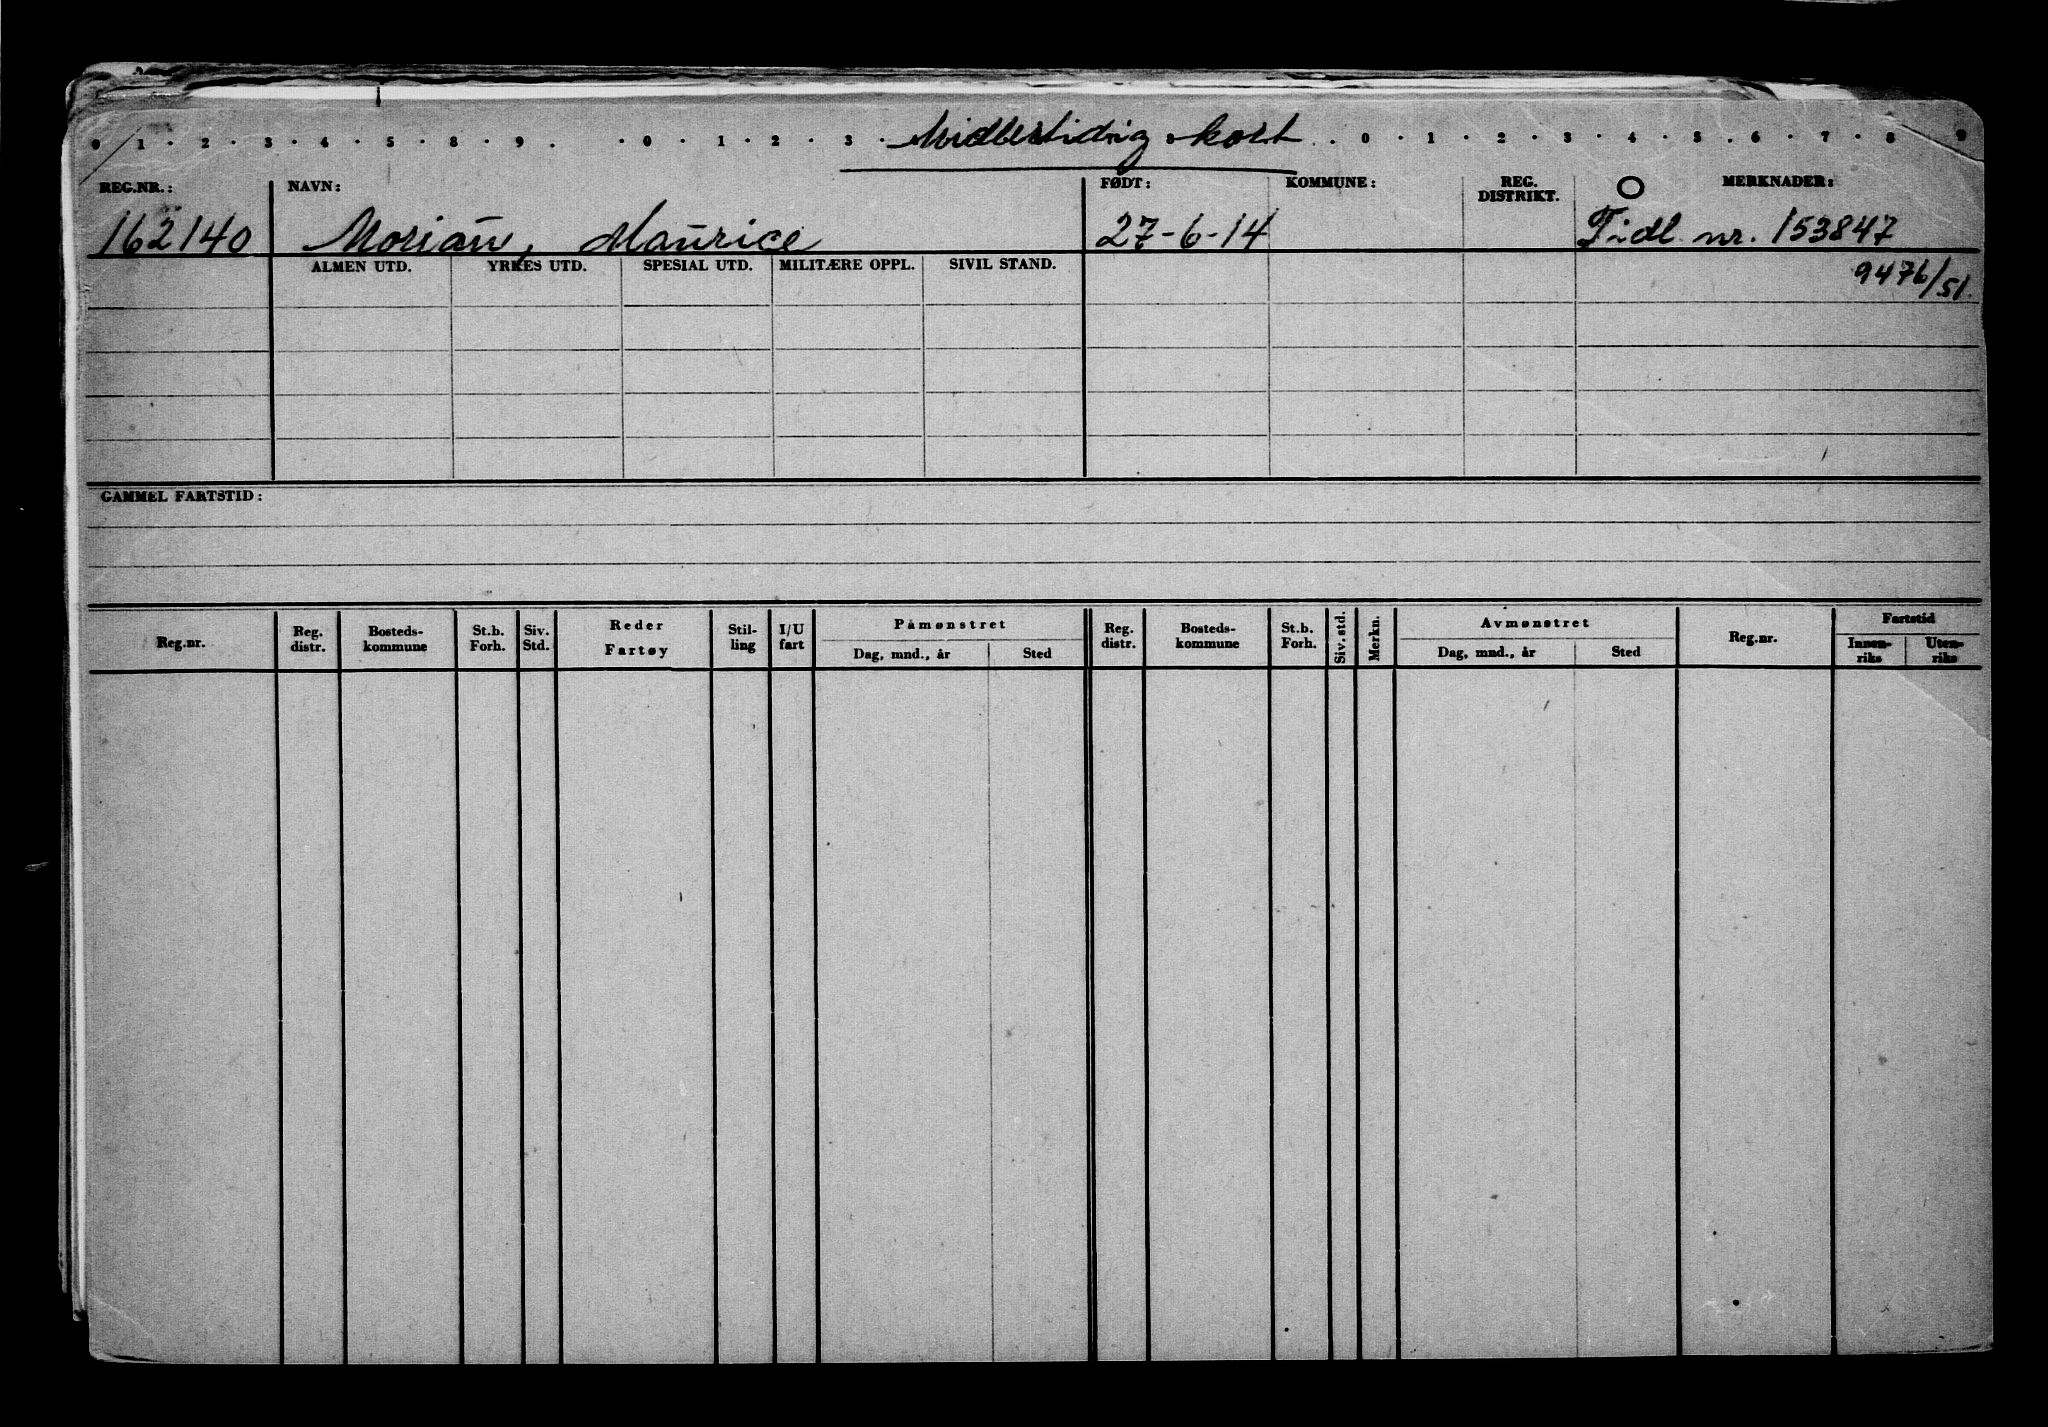 0 · 1 · 2 · 3 · 4 · 5 · 8 · 9 · · 0 · 1 · 2 · 3 · Midlertidig kort · 0 · 1 · 2 · 3 · 4 · 5 · 6 · 7 · 8 · 9
REG.NR.: NAVN: FØDT: KOMMUNE: REG. DISTRIKT. O MERKNADER:
162140 Morian, Maurice 27-6-14 Tidl. nr. 153847
ALMEN UTD. YRKES UTD. SPESIAL UTD. MILITÆRE OPPL. SIVIL STAND. 9476/51
GAMMEL FARTSTID:
Reg.nr. Reg. distr. Bosteds-kommune St.b. Forh. Siv. Std. Reder Fartøy Stil-ling I/U fart Påmønstret Reg. distr. Bosteds-kommune St.b. Forh. Siv. std. Merkn. Avmønstret Reg.nr. Fartstid
Dag, mnd., år Sted Dag, mnd., år Sted Innen-riks Uten-riks